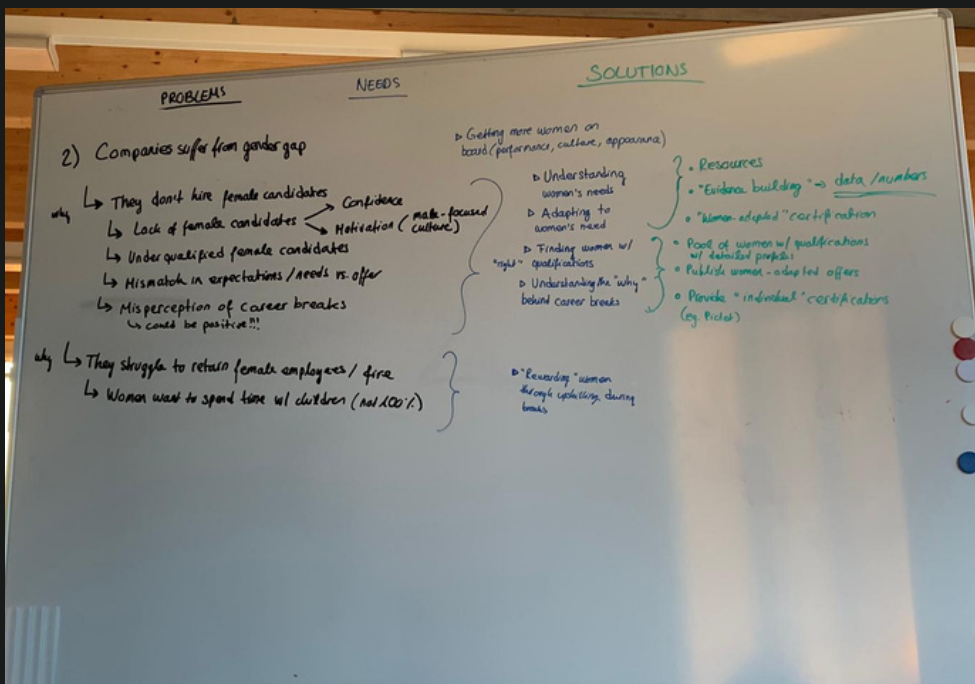 PROBLEMS
NEEDS
SOLUTIONS
2) Companies suffer from gender gap
why ↳ They don't hire female candidates
↳ Lack of female candidates
→ Confidence
→ Motivation (male-focused
culture)
↳ Underqualified female candidates
↳ Mismatch in expectations/needs vs. offer
↳ Misperception of career breaks
↳ could be positive!!!
why ↳ They struggle to retain female employees/
↳ Women want to spend time w/ children (not 100%)
▷ Getting more women on
board (performance, culture, appearance)
▷ Understanding
women's needs
▷ Adapting to
women's need
▷ Finding women w/
"right" qualifications
▷ Understanding the "why"
behind career breaks
▷ "Rewarding" women
through upskilling during
breaks
• Resources
• "Evidence building" → data/numbers
• "Women-adapted" certification
• Pool of women w/ qualifications
w/ detailed profiles
• Publish women-adapted offers
• Provide "individual" certifications
(eg. Pictet)